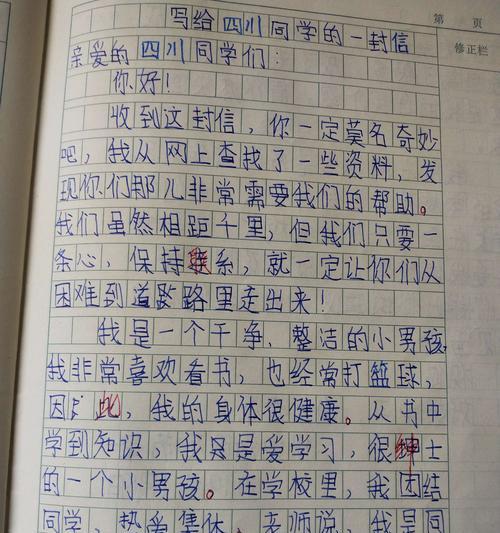 写给四川同学的一封信
第 页
亲爱的四川同学们：
修正栏
你好！
收到这封信，你一定莫名奇妙
吧，我从网上查找了一些资料，发
现你们那儿非常需要我们的帮助。
我们虽然相距千里，但我们只要一
条心，保持联系，就一定让你们从
困难到道路里走出来！
我是一个干净、整洁的小男孩
我非常喜欢看书，也经常打篮球，
因此，我的身体很健康。从书中
学到知识，我只是爱学习，很绅士
的一个小男孩。在学校里，我团结
同学，热爱集体，老师说，我是同